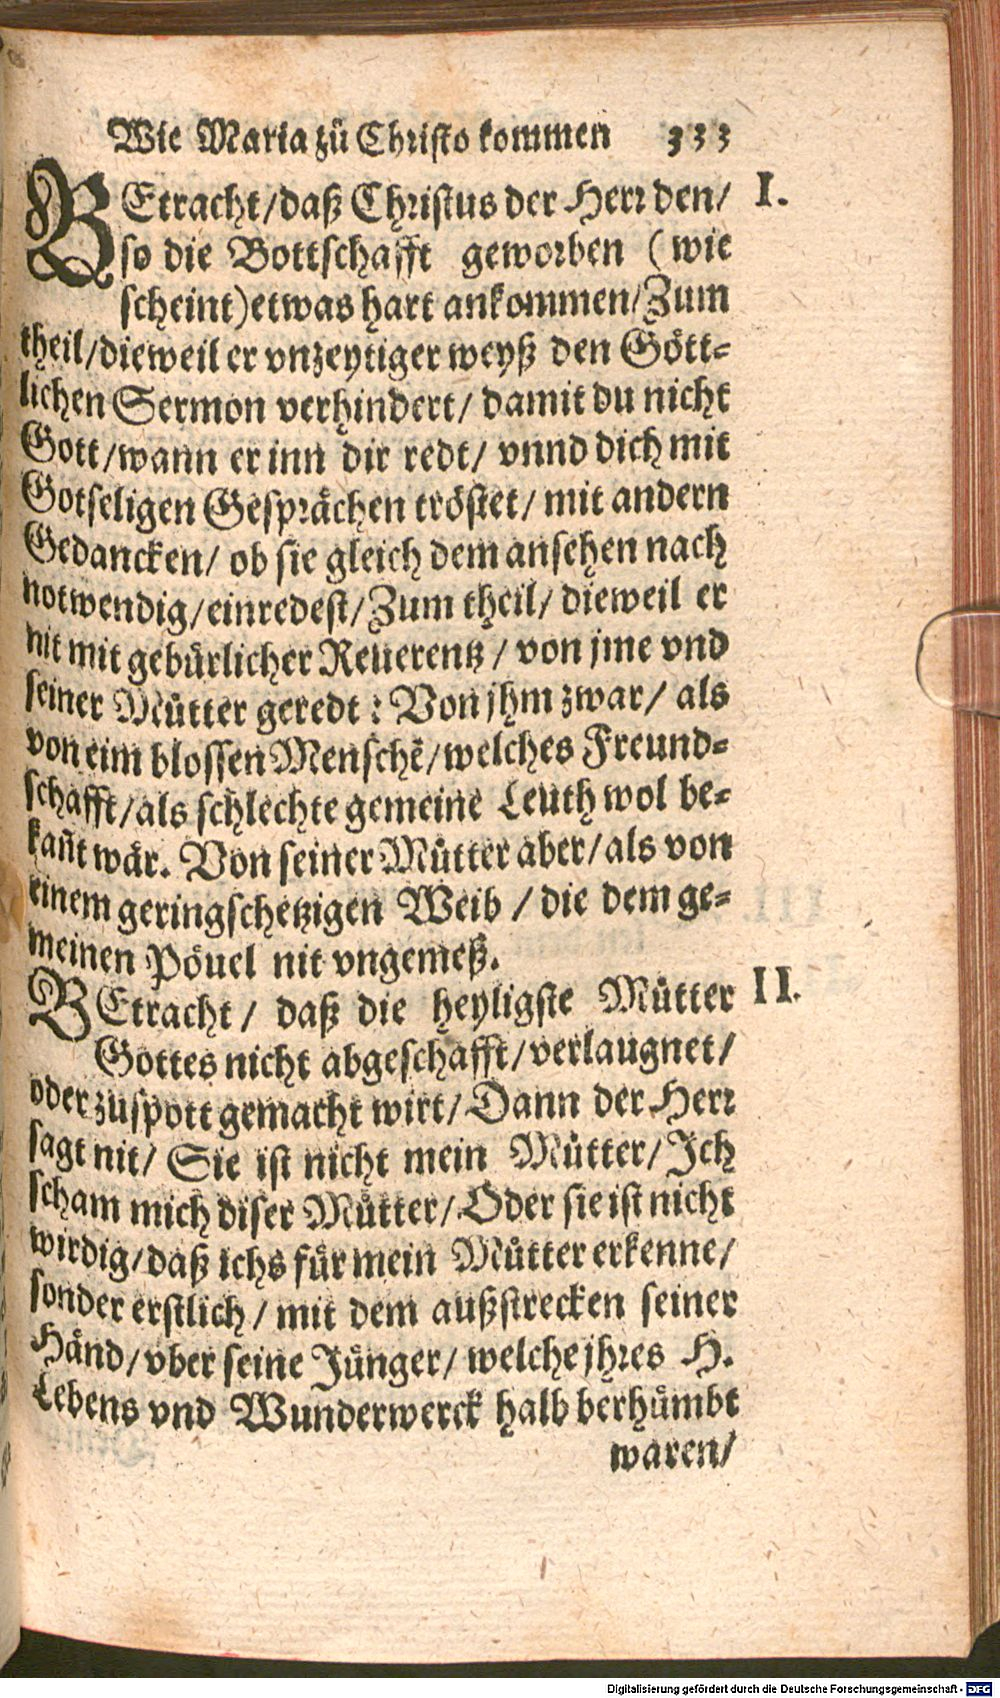 Wie Maria zů Christo kommen 333
BEtracht/daß Christus der Herr den/ I.
so die Bottschafft geworben (wie
scheint)etwas hart ankommen/Zum
theil/dieweil er vnzeytiger weyß den Gött=
lichen Sermon verhindert/ damit du nicht
Gott/wann er inn dir redt/ vnnd dich mit
Gotseligen Gesprächen tröstet/ mit andern
Gedancken/ ob sie gleich dem ansehen nach
notwendig/einredest/Zum theil/ dieweil er
nit mit gebürlicher Reuerentz/ von jme vnd
seiner Můtter geredt: Von jhm zwar/ als
von eim blossen Menschẽ/welches Freund=
schafft/als schlechte gemeine Leuth wol be=
kañt wär. Von seiner Můtter aber/als von
einem geringschetzigen Weib / die dem ge=
meinen Pöuel nit vngemeß.
BEtracht/ daß die heyligste Můtter II.
Gottes nicht abgeschafft/verlaugnet/
oder zůspott gemacht wirt/Dann der Herr
sagt nit/ Sie ist nicht mein Můtter/Ich
scham mich diser Můtter/Oder sie ist nicht
wirdig/daß ichs für mein Můtter erkenne/
sonder erstlich / mit dem außstrecken seiner
Händ/vber seine Jünger/ welche jhres H.
Lebens vnd Wunderwerck halb berhümbt
waren/
Digitalisierung gefördert durch die Deutsche Forschungsgemeinschaft - DFG